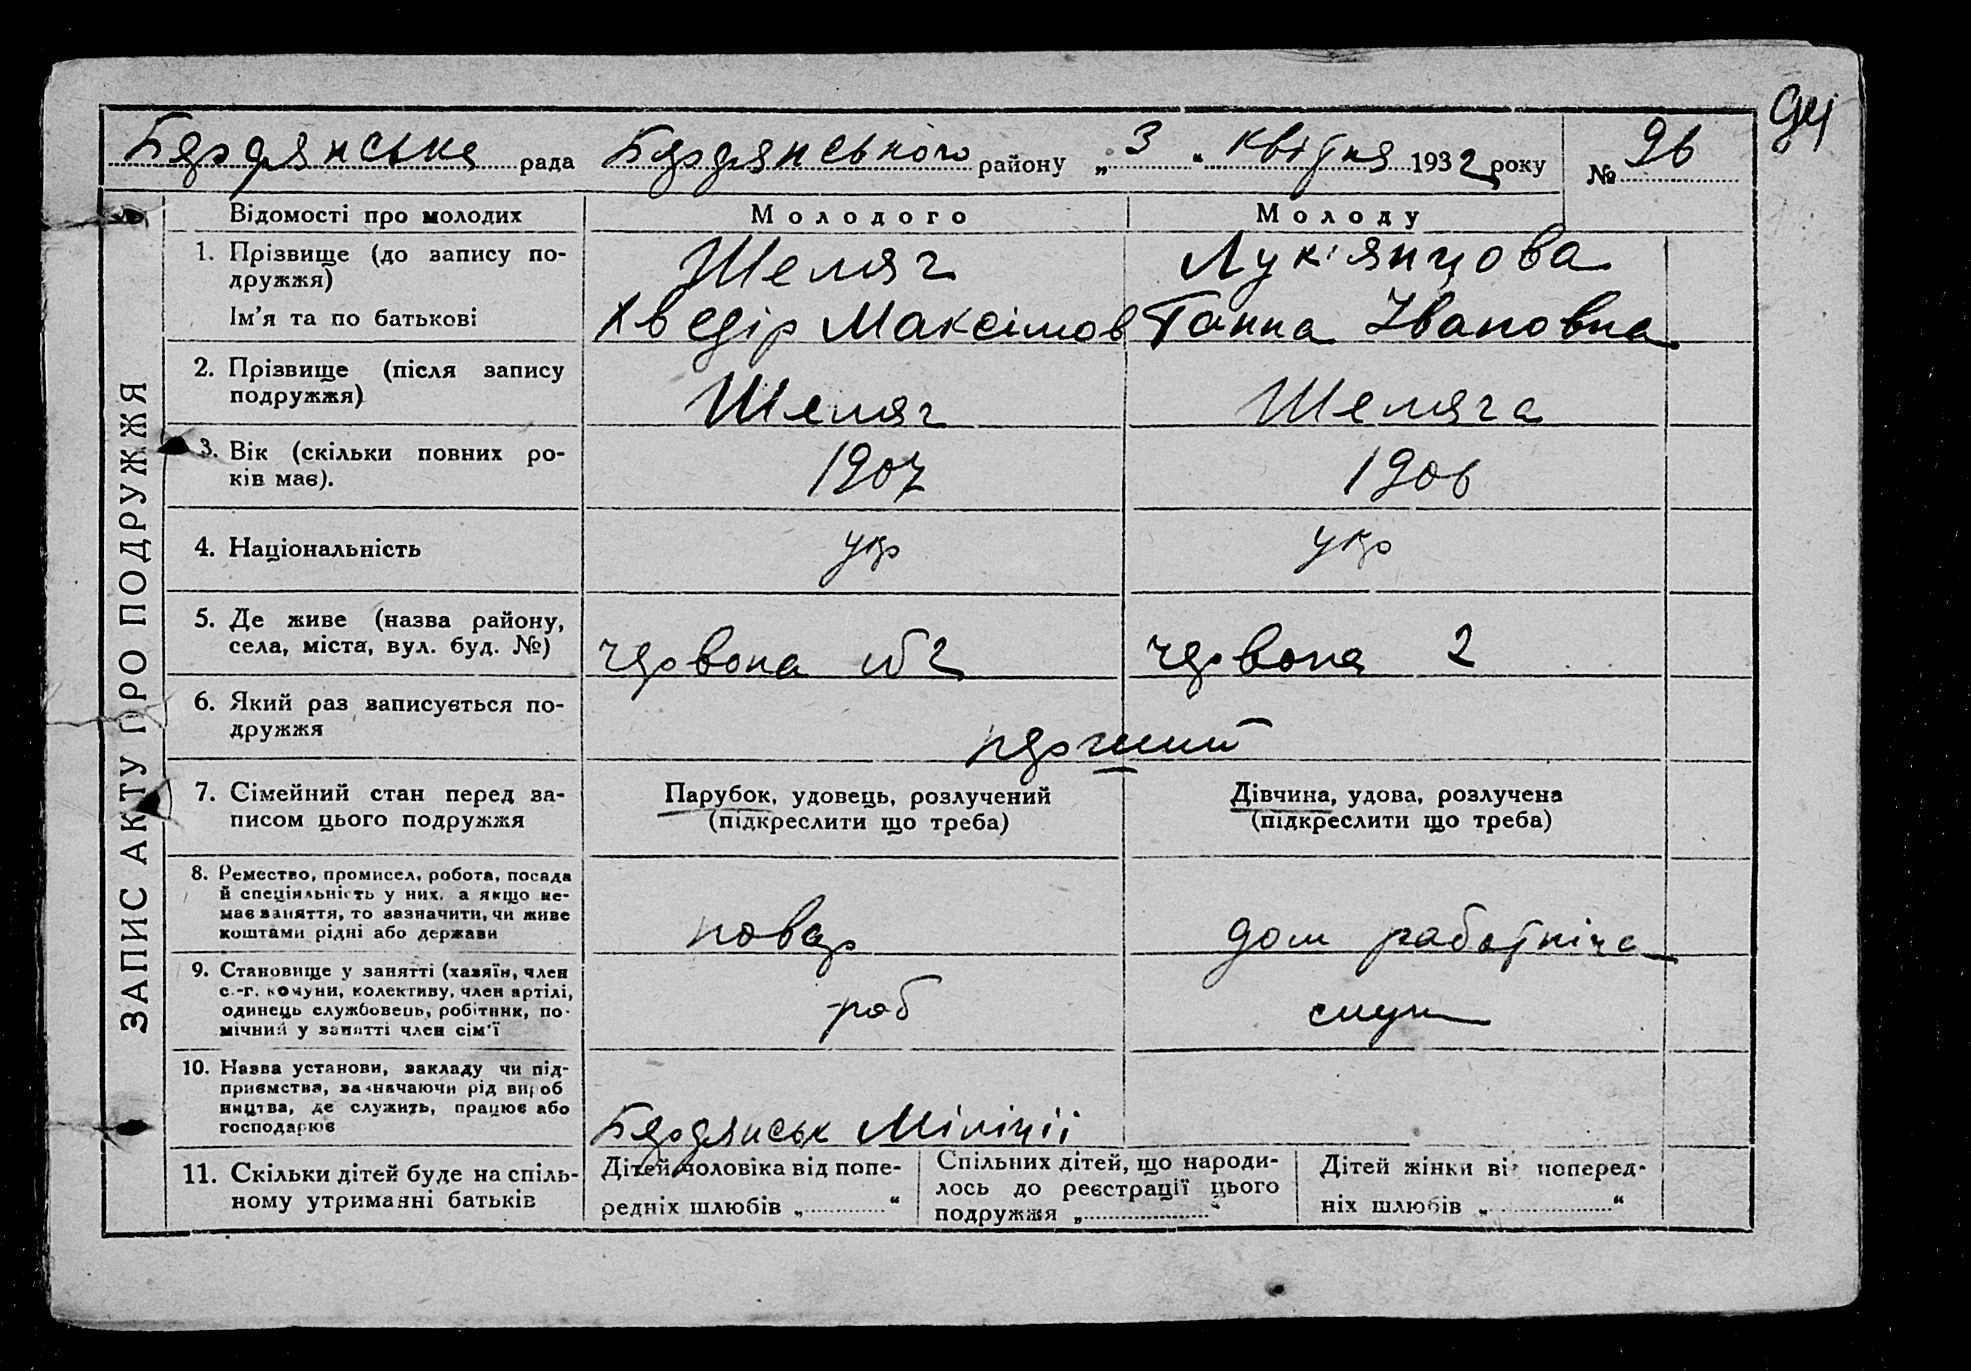 94
Бердянська рада Бердянського району „3“ квітня 1932 року № 96
ЗАПИС АКТУ ПРО ПОДРУЖЖЯ
Відомості про молодих
Молодого
Молоду
1. Прізвище (до запису по-
дружжя)
Шемяг
Лук'янцова
Ім'я та по батькові
Хведір Максімов
Ганна Івановна
2. Прізвище (після запису
подружжя)
Шемяг
Шемяга
3. Вік (скільки повних ро-
ків має).
1907
1906
4. Національність
укр
укр
5. Де живе (назва району,
села, міста, вул. буд. №)
червона № 2
червона 2
6. Який раз записується по-
дружжя
перший
7. Сімейний стан перед за-
писом цього подружжя
Парубок, удовець, розлучений
(підкреслити що треба)
Дівчина, удова, розлучена
(підкреслити що треба)
8. Ремество, промисел, робота, посада
й спеціяльність у них, а якщо не-
має заняття, то зазначити, чи живе
коштами рідні або держави
повар
дом работніца
9. Становище у занятті (хазяїн, член
с.-г. комуни, колективу, член артілі,
одинець службовець, робітник, по-
мічний у занятті член сім'ї
раб
служ
10. Назва установи, закладу чи під-
приємства, зазначаючи рід вироб
ництва, де служить, працює або
господарює
Бердянськ Міліції
11. Скільки дітей буде на спіль-
ному утриманні батьків
Дітей чоловіка від попе-
редніх шлюбів „ “
Спільних дітей, що народи-
лось до реєстрації цього
подружжя „ “
Дітей жінки від поперед-
ніх шлюбів „ “